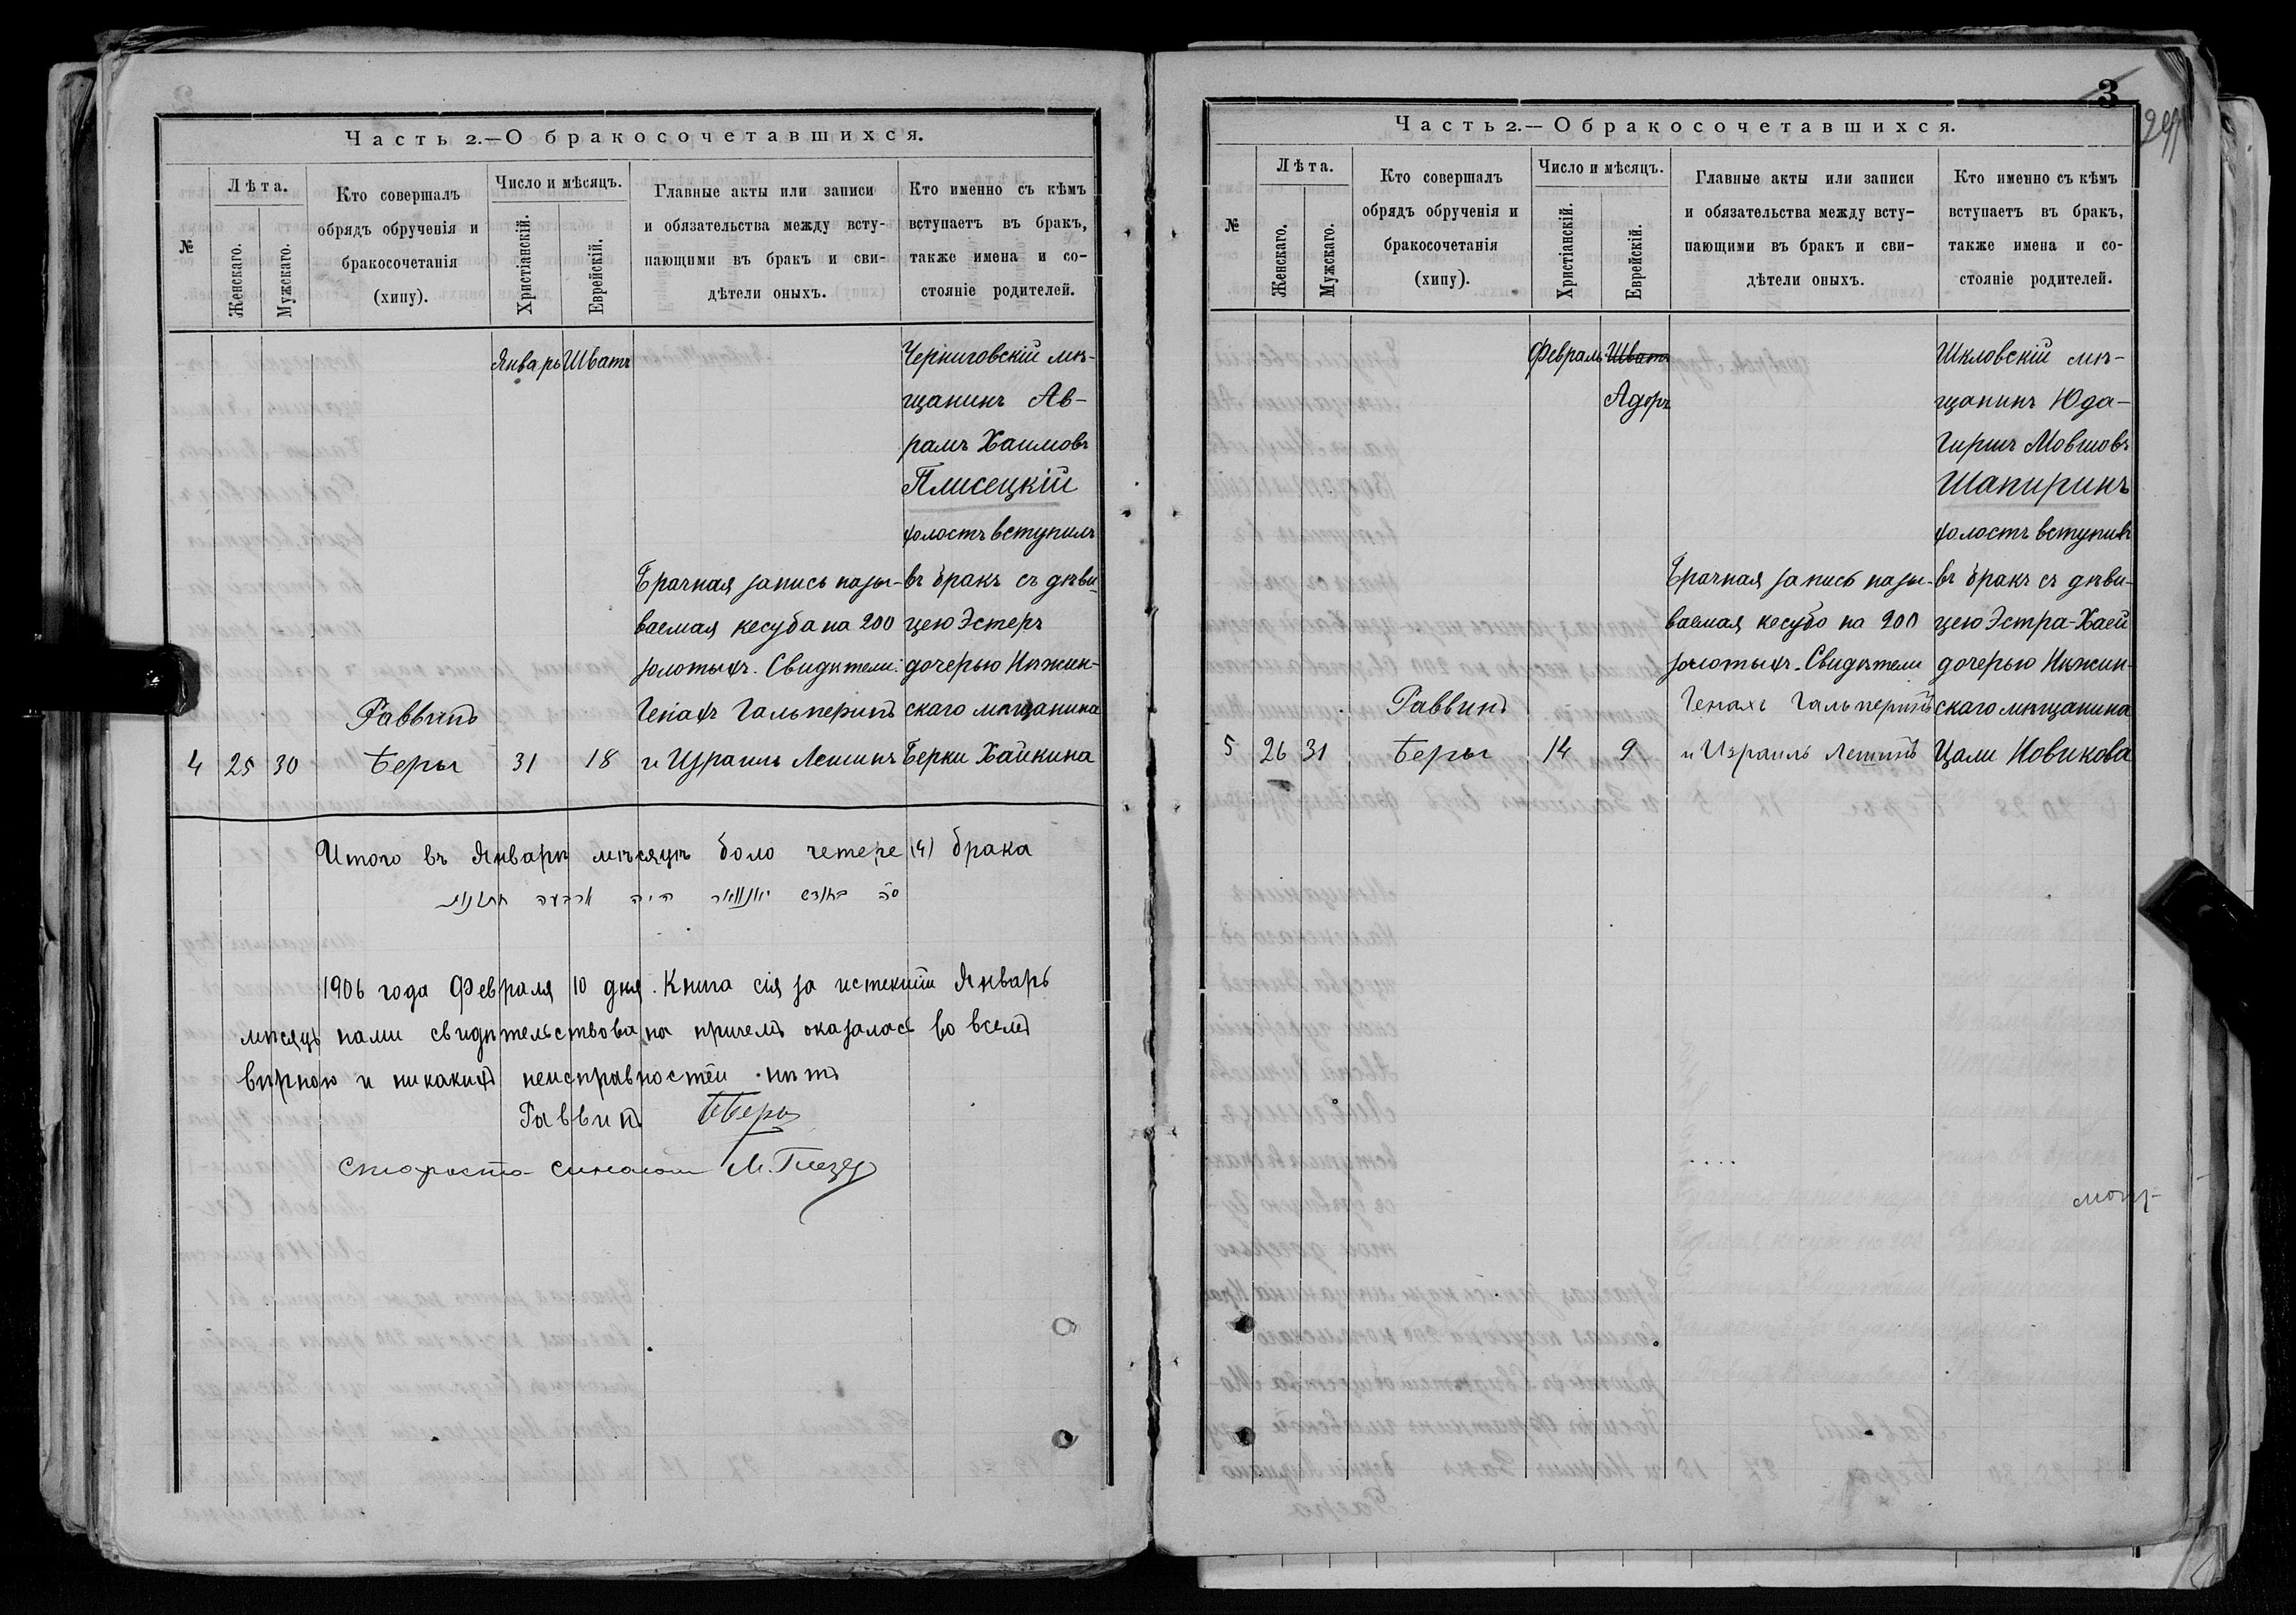 Часть 2.—О бракосочетавшихся.
№
Лѣта.
Женскаго.
Мужскаго.
Кто совершалъ
обрядъ обрученія и
бракосочетанія
(хипу).
Число и мѣсяцъ.
Христіанскій.
Еврейскій.
Главные акты или записи
и обязательства между всту-
пающими въ бракъ и сви-
дѣтели оныхъ.
Кто именно съ кѣмъ
вступаетъ въ бракъ,
также имена и со-
стояніе родителей.
4
25
30
Раввинъ
Беры
Январь
31
Шватъ
18
Брачная запись назы-
ваемая кесуба на 200
золотыхъ. Свидѣтели:
Генахъ Гальперинъ
и Израиль Лешинъ
Черниговскій мѣ-
щанинъ Ав-
рамъ Хаимовъ
Плисецкій
холостъ вступилъ
въ бракъ съ дѣви-
цею Эстеръ
дочерью Нѣжин-
скаго мѣщанина
Берки Хайкина
Итого въ Январѣ мѣсяцѣ было четере (4) брака
סה החדש יאנוואר היה ארבעה חתונות
1906 года Февраля 10 дня. Книга сія за истекшій Январь
мѣсяцъ нами свидѣтельствована причемъ оказалась во всемъ
вѣрною и никакихъ неисправностей нѣтъ
Раввинъ Беры
Староста синагоги М.
3
Часть 2.—О бракосочетавшихся.
№
Лѣта.
Женскаго.
Мужскаго.
Кто совершалъ
обрядъ обрученія и
бракосочетанія
(хипу).
Число и мѣсяцъ.
Христіанскій.
Еврейскій.
Главные акты или записи
и обязательства между всту-
пающими въ бракъ и сви-
дѣтели оныхъ.
Кто именно съ кѣмъ
вступаетъ въ бракъ,
также имена и со-
стояніе родителей.
5
26
31
Раввинъ
Беры
Февраль
14
Шватъ
Адоръ
9
Брачная запись назы-
ваемая кесубо на 200
золотыхъ. Свидѣтели
Генахъ Гальперинъ
и Израиль Лешинъ
Шкловскій мѣ-
щанинъ Юда-
Гиршъ Мовшовъ
Шапиринъ
холостъ вступилъ
въ бракъ съ дѣви-
цею Эстра-Хаей
дочерью Нѣжин-
скаго мѣщанина
Цали Новикова